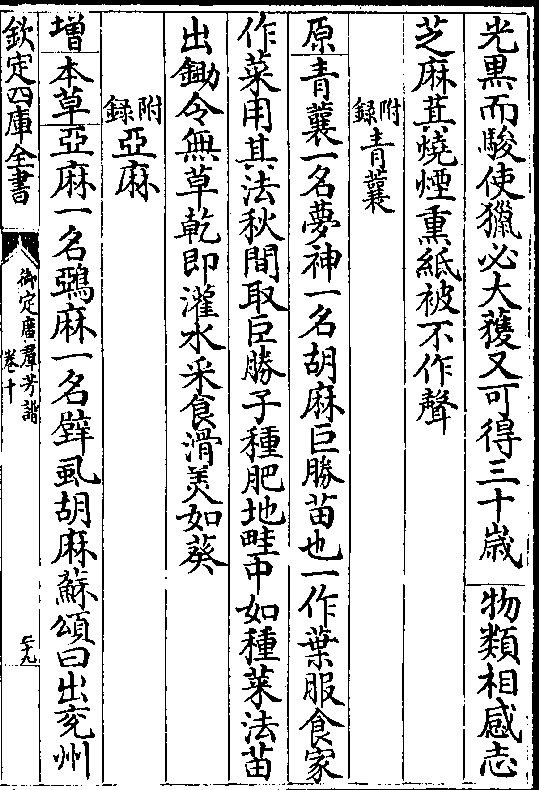 光黒而駿使獵必大獲又可得三十歳 物類相感志
芝麻萁燒煙熏紙被不作聲
附録青蘘
原青蘘一名夢神一名胡麻巨勝苗也一作葉服食家
作菜用其法秋間取巨勝子種肥地畦中如種菜法苗
出鋤令無草乾即灌水采食滑美如葵
附録亞麻
增本草亞麻一名鵶麻一名壁虱胡麻蘇頌曰出兖州
欽定四庫全書
御定廣羣芳譜
卷十
二九